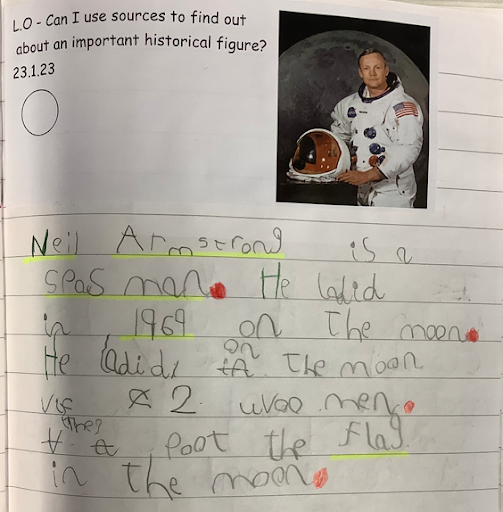 L.O - Can I use sources to find out
about an important historical figure?
23.1.23
Neil Armstrong is a
spas man. He ladid
in 1969 on the moon.
He ladid on the moon
vif 2 uvoo men.
they poot the flag
in the moon.